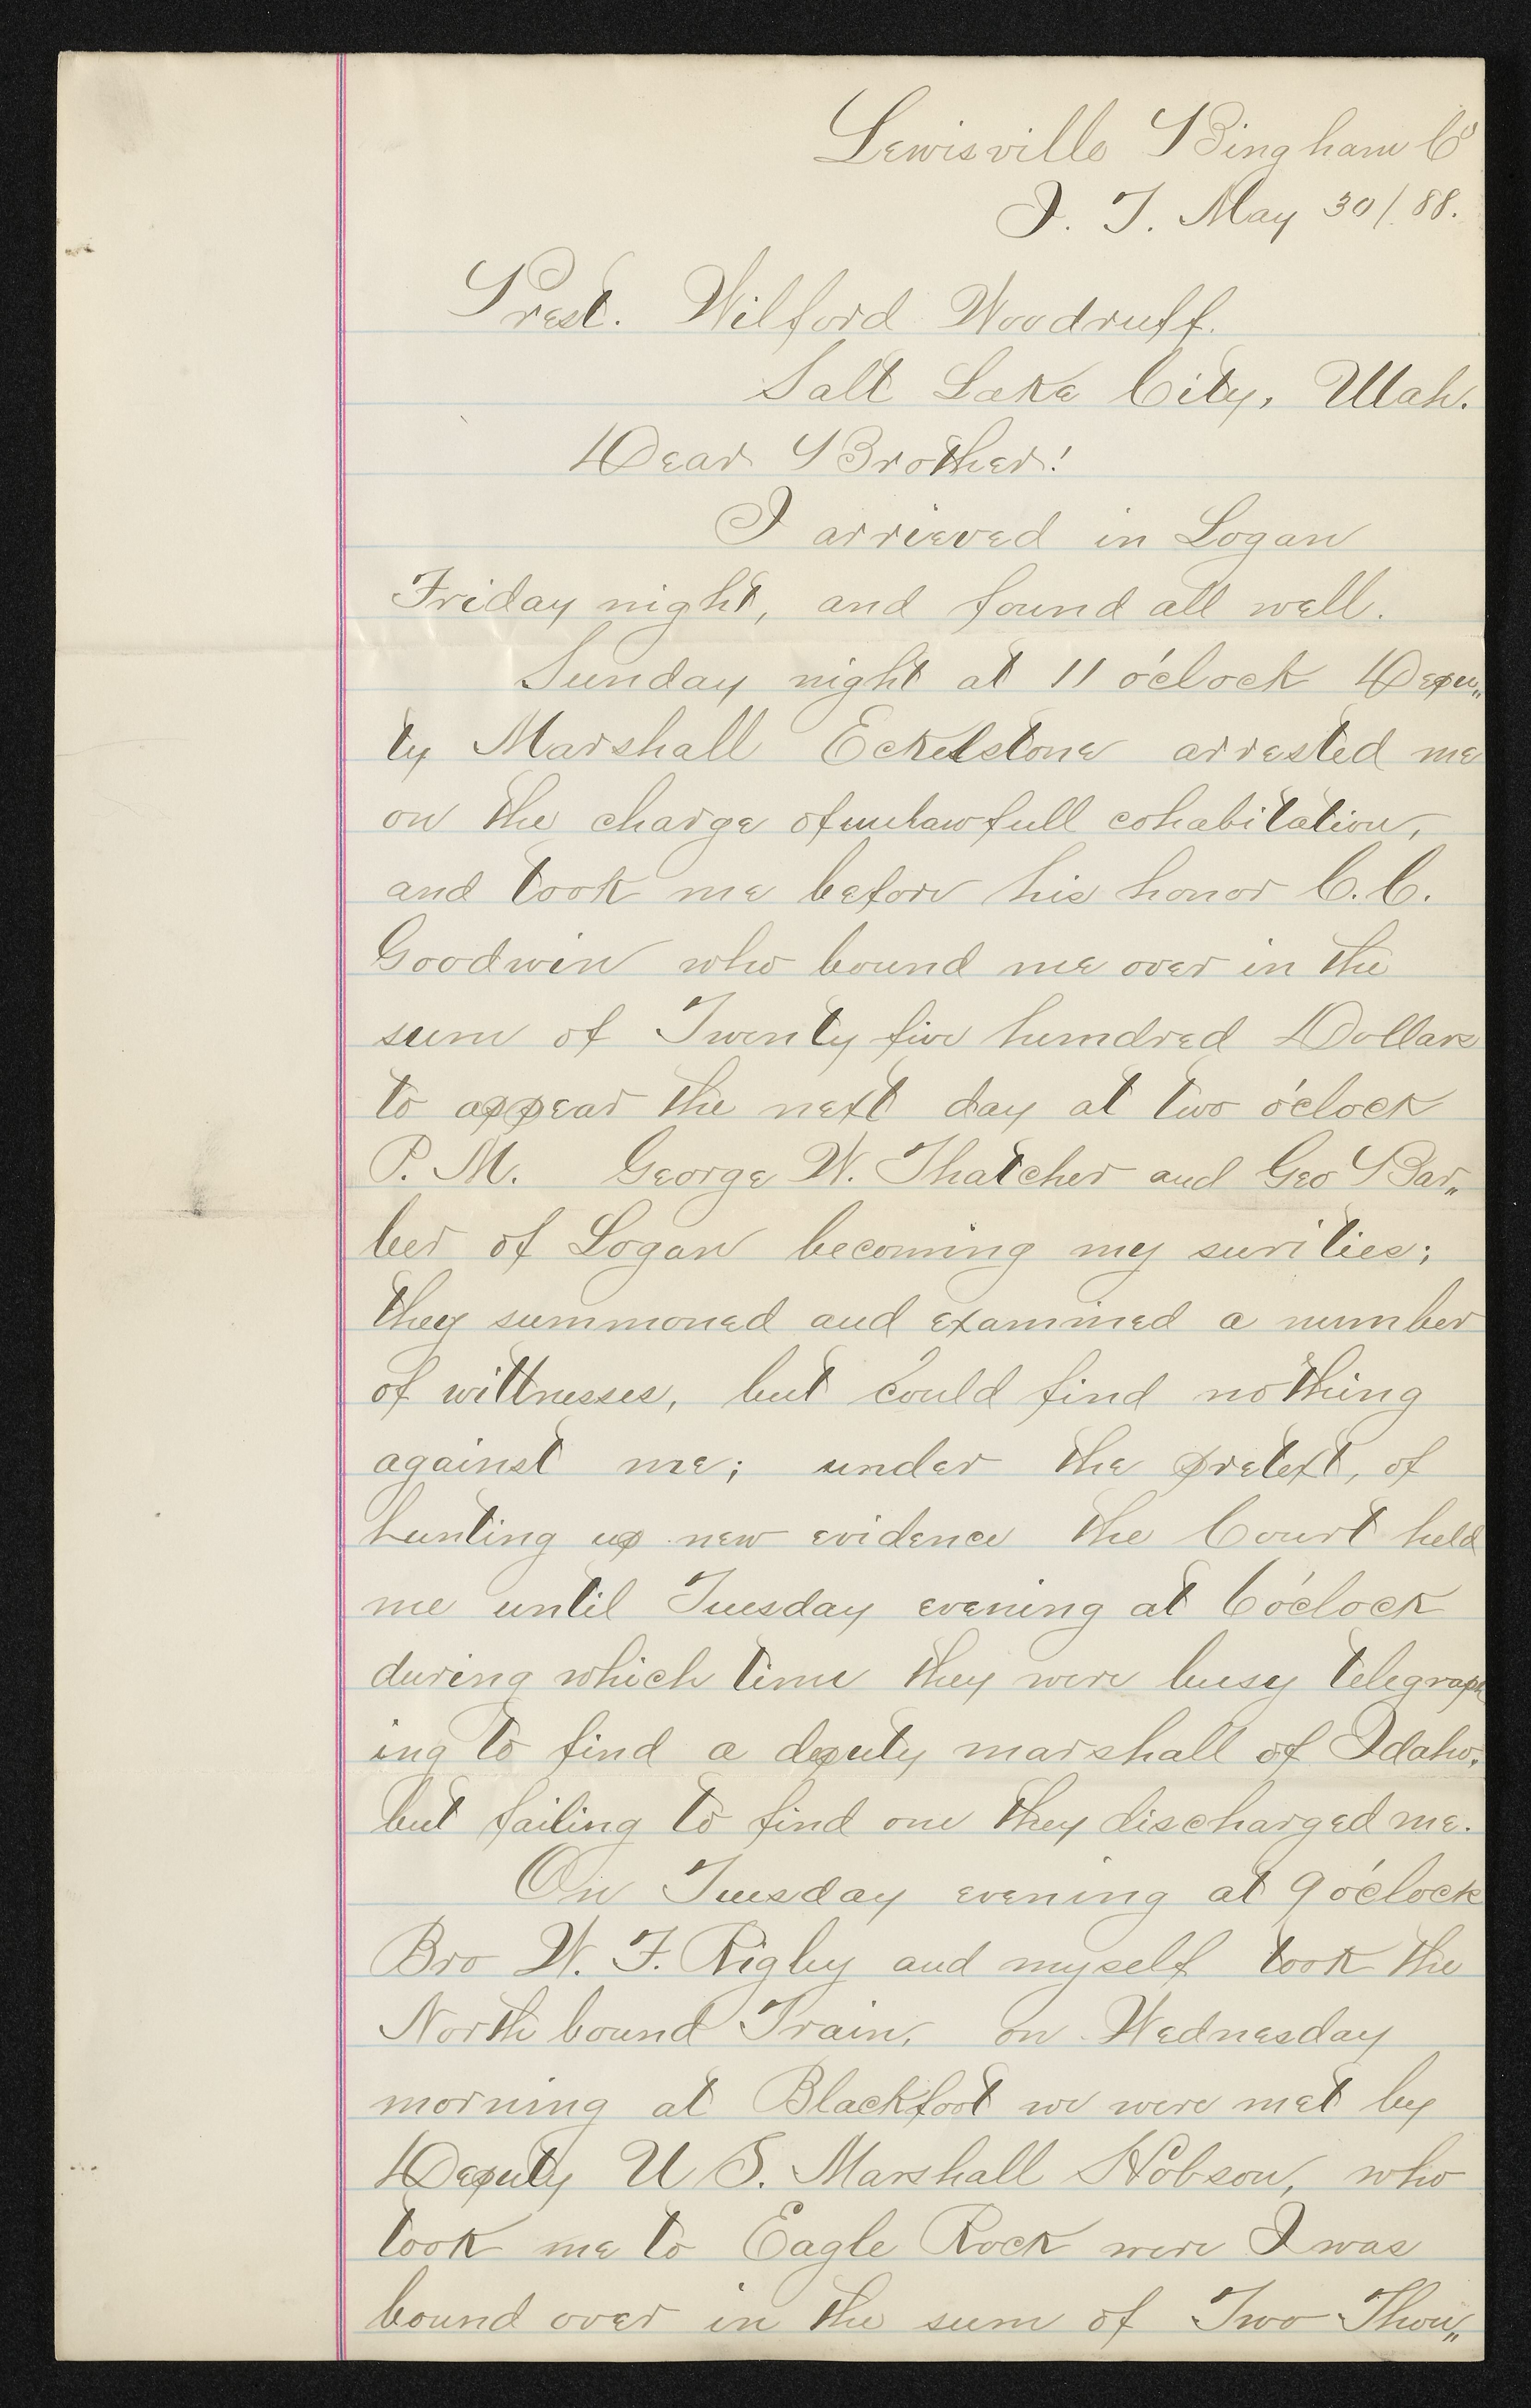 Lewisville Bingham Co
I. T. May 30/. 88.
Prest. Wilford Woodruff.
Salt Lake City, Utah.
Dear Brother!
I arrieved in Logan
Friday night, and found all well.
Sunday night at 11 o'clock Depu„
ty Marshall Eckelstone arrested me
on the charge of unlawfull cohabitation,
and took me before his honor C. C.
Goodwin who bound me over in the
sum of Twenty five hundred Dollars
to appear the next day at two o'clock
P. M. George W. Thatcher and Geo Bar„
ber of Logan becoming my surities;
they summoned and examined a number
of wittnesses, but could find nothing
against me; under the pretext, of
hunting up new evidence the Court held
me until Tuesday evening at 6 o'clock
during which time they were busy telegraph
ing to find a deputy marshall of Idaho,
but failing to find one they discharged me.
On Tuesday evening at 9 o'clock
Bro W. F. Rigby and myself took the
North bound Train, on Wednesday
morning at Blackfoot we were met by
Deputy U S. Marshall Hobson, who
took me to Eagle Rock were I was
bound over in the sum of Two Thou„